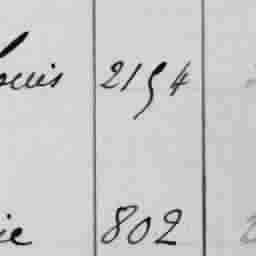 ouis 2154
ie 802